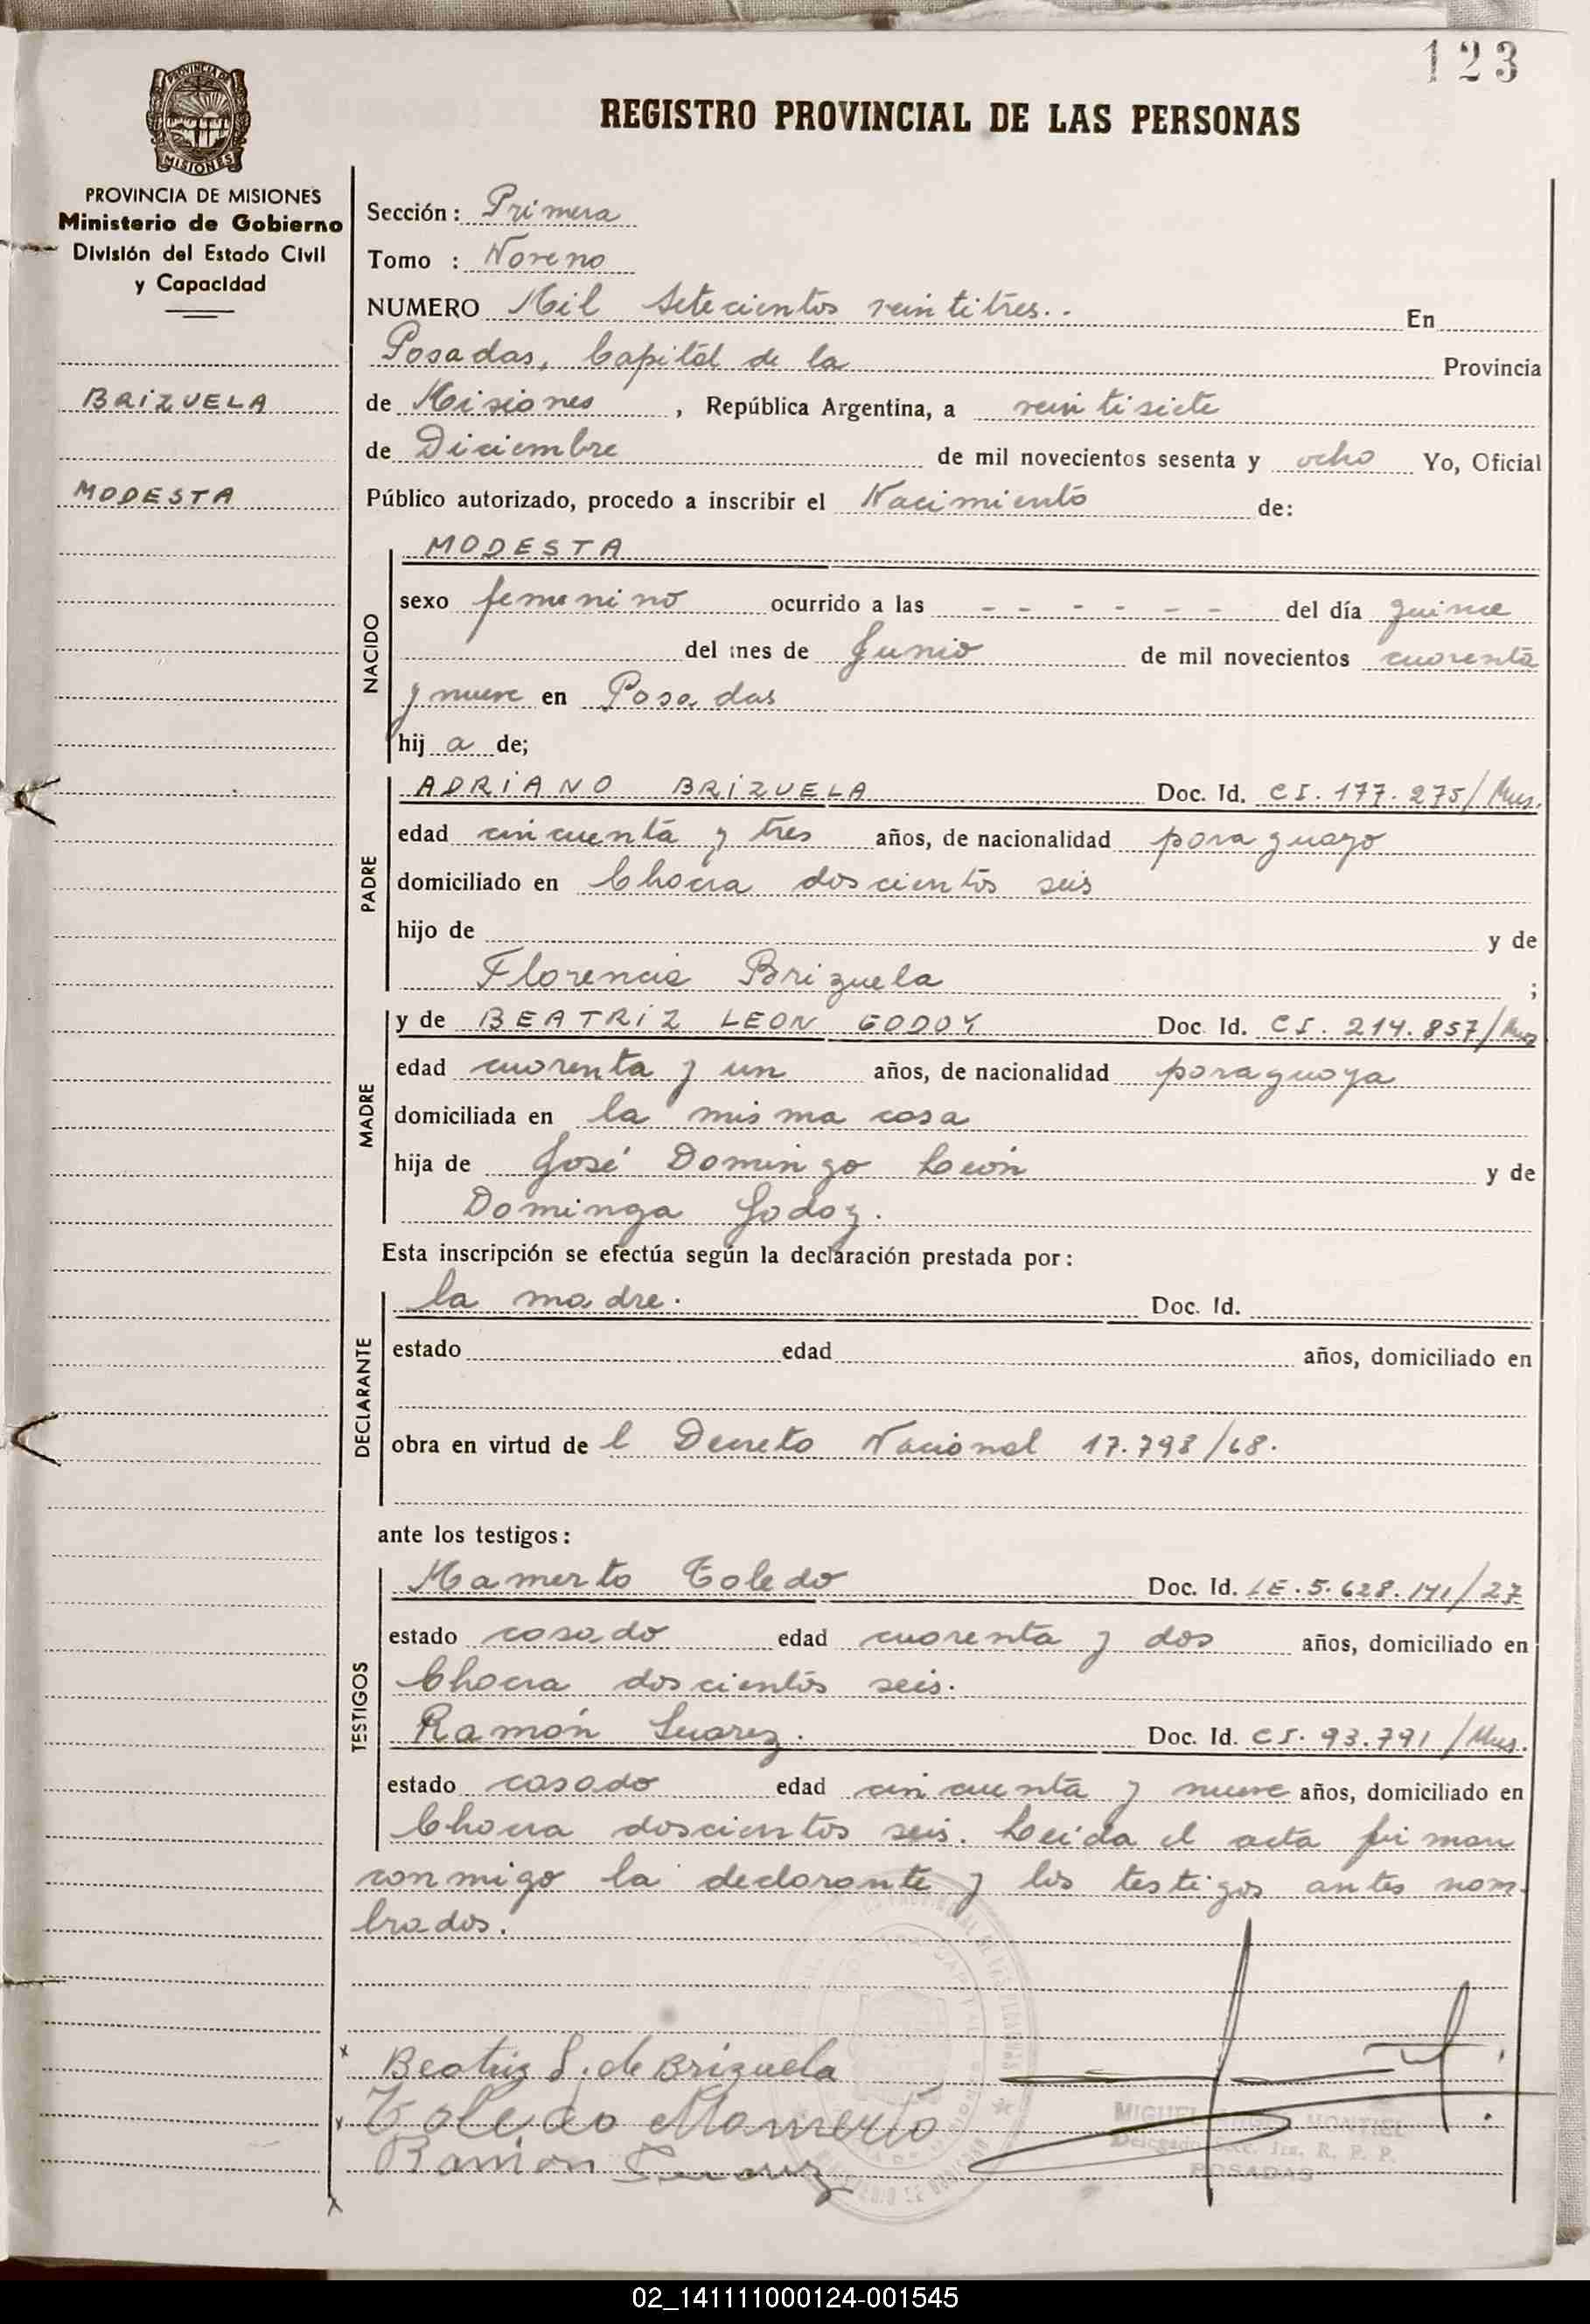 123
PROVINCIA DE
MISIONES
REGISTRO PROVINCIAL DE LAS PERSONAS
PROVINCIA DE MISIONES
Ministerio de Gobierno
División del Estado Civil
y Capacidad
BRIZUELA
MODESTA
Sección: Primera
Tomo : Noveno
NUMERO Mil Setecientos veintitres.. En
Posadas, Capital de la Provincia
de Misiones, República Argentina, a veintisiete
de Diciembre de mil novecientos sesenta y ocho Yo, Oficial
Público autorizado, procedo a inscribir el Nacimiento de:
NACIDO
MODESTA
sexo femenino ocurrido a las - - - - - - del día quince
del mes de Junio de mil novecientos cuarenta
y nueve en Posadas
hij a de;
PADRE
ADRIANO BRIZUELA Doc. Id. CI. 177.275/Mns.
edad cincuenta y tres años, de nacionalidad paraguayo
domiciliado en Chacra doscientos seis
hijo de y de
Florencia Brizuela ;
MADRE
y de BEATRIZ LEON GODOY Doc. Id. CI. 214.857/Mns
edad cuarenta y un años, de nacionalidad paraguaya
domiciliada en la misma casa
hija de José Domingo León y de
Dominga Godoy.
Esta inscripción se efectúa según la declaración prestada por:
DECLARANTE
la madre. Doc. Id.
estado edad años, domiciliado en
obra en virtud de l Decreto Nacional 17.798/68.
ante los testigos:
TESTIGOS
Mamerto Toledo Doc. Id. LE.5.628.141/27
estado casado edad cuarenta y dos años, domiciliado en
Chacra doscientos seis.
Ramón Suarez. Doc. Id. CI. 93.791/Mns.
estado casado edad cincuenta y nueve años, domiciliado en
Chacra doscientos seis. Leída el acta firman
conmigo la declarante y los testigos antes nom-
brados.
Beatriz L. de Brizuela
Toledo Mamerto
Ramon Suarez
MIGUEL ANGEL MONTIEL
R. P. P.
POSADAS
02_141111000124-001545